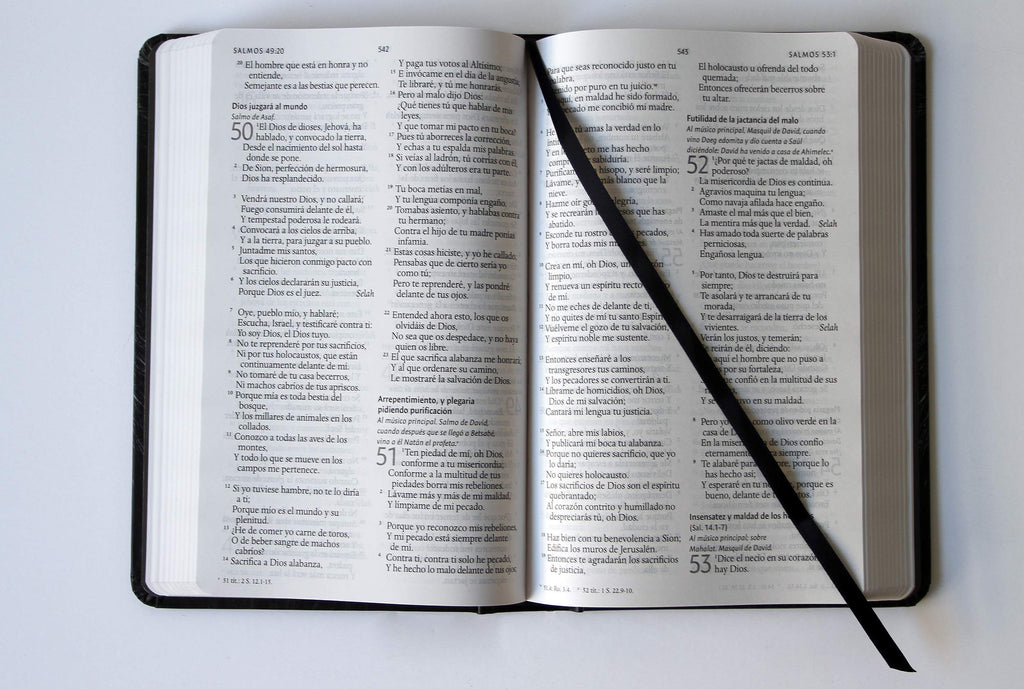 SALMOS 49:20
542
20 El hombre que está en honra y no
entiende,
Semejante es a las bestias que perecen.
Dios juzgará al mundo
Salmo de Asaf.
50 1El Dios de dioses, Jehová, ha
hablado, y convocado la tierra,
Desde el nacimiento del sol hasta
donde se pone.
2 De Sion, perfección de hermosura,
Dios ha resplandecido.
3 Vendrá nuestro Dios, y no callará;
Fuego consumirá delante de él,
Y tempestad poderosa le rodeará.
4 Convocará a los cielos de arriba,
Y a la tierra, para juzgar a su pueblo.
5 Juntadme mis santos,
Los que hicieron conmigo pacto con
sacrificio.
6 Y los cielos declararán su justicia,
Porque Dios es el juez. Selah
7 Oye, pueblo mío, y hablaré;
Escucha, Israel, y testificaré contra ti:
Yo soy Dios, el Dios tuyo.
8 No te reprenderé por tus sacrificios,
Ni por tus holocaustos, que están
continuamente delante de mí.
9 No tomaré de tu casa becerros,
Ni machos cabríos de tus apriscos.
10 Porque mía es toda bestia del
bosque,
Y los millares de animales en los
collados.
11 Conozco a todas las aves de los
montes,
Y todo lo que se mueve en los
campos me pertenece.
12 Si yo tuviese hambre, no te lo diría
a ti;
Porque mío es el mundo y su
plenitud.
13 ¿He de comer yo carne de toros,
O de beber sangre de machos
cabríos?
14 Sacrifica a Dios alabanza,
* 51 tít.: 2 S. 12.1-15.
Y paga tus votos al Altísimo;
15 E invócame en el día de la angustia;
Te libraré, y tú me honrarás.
16 Pero al malo dijo Dios:
¿Qué tienes tú que hablar de mis
leyes,
Y que tomar mi pacto en tu boca?
17 Pues tú aborreces la corrección,
Y echas a tu espalda mis palabras.
18 Si veías al ladrón, tú corrías con él,
Y con los adúlteros era tu parte.
19 Tu boca metías en mal,
Y tu lengua componía engaño.
20 Tomabas asiento, y hablabas contra
tu hermano;
Contra el hijo de tu madre ponías
infamia.
21 Estas cosas hiciste, y yo he callado;
Pensabas que de cierto sería yo
como tú;
Pero te reprenderé, y las pondré
delante de tus ojos.
22 Entended ahora esto, los que os
olvidáis de Dios,
No sea que os despedace, y no haya
quien os libre.
23 El que sacrifica alabanza me honrará;
Y al que ordenare su camino,
Le mostraré la salvación de Dios.
Arrepentimiento, y plegaria
pidiendo purificación
Al músico principal. Salmo de David,
cuando después que se llegó a Betsabé,
vino a él Natán el profeta.*
51 1Ten piedad de mí, oh Dios,
conforme a tu misericordia;
Conforme a la multitud de tus
piedades borra mis rebeliones.
2 Lávame más y más de mi maldad,
Y límpiame de mi pecado.
3 Porque yo reconozco mis rebeliones,
Y mi pecado está siempre delante
de mí.
4 Contra ti, contra ti solo he pecado,
Y he hecho lo malo delante de tus ojos;
543
SALMOS 53:1
Para que seas reconocido justo en tu
palabra,
por puro en tu juicio.*
en maldad he sido formado,
pecado me concibió mi madre.
tú amas la verdad en lo
me has hecho
sabiduría.
hisopo, y seré limpio;
Lávame, y más blanco que la
nieve.
Hazme oír
Y se recrearán que has
abatido.
9 Esconde tu rostro pecados,
Y borra todas mis
10 Crea en mí, oh Dios, un
limpio,
Y renueva un espíritu recto
de mí.
11 No me eches de delante de ti,
Y no quites de mí tu santo Espíritu.
12 Vuélveme el gozo de tu salvación,
Y espíritu noble me sustente.
13 Entonces enseñaré a los
transgresores tus caminos,
Y los pecadores se convertirán a ti.
14 Líbrame de homicidios, oh Dios,
Dios de mi salvación;
Cantará mi lengua tu justicia.
15 Señor, abre mis labios,
Y publicará mi boca tu alabanza.
16 Porque no quieres sacrificio, que yo
lo daría;
No quieres holocausto.
17 Los sacrificios de Dios son el espíritu
quebrantado;
Al corazón contrito y humillado no
despreciarás tú, oh Dios.
18 Haz bien con tu benevolencia a Sion;
Edifica los muros de Jerusalén.
19 Entonces te agradarán los sacrificios
de justicia,
* 51.4: Ro. 3.4. * 52 tít.: 1 S. 22.9-10.
El holocausto u ofrenda del todo
quemada;
Entonces ofrecerán becerros sobre
tu altar.
Futilidad de la jactancia del malo
Al músico principal. Masquil de David, cuando
vino Doeg edomita y dio cuenta a Saúl
diciéndole: David ha venido a casa de Ahimelec.*
52 1¿Por qué te jactas de maldad, oh
poderoso?
La misericordia de Dios es continua.
2 Agravios maquina tu lengua;
Como navaja afilada hace engaño.
3 Amaste el mal más que el bien,
La mentira más que la verdad. Selah
4 Has amado toda suerte de palabras
perniciosas,
Engañosa lengua.
5 Por tanto, Dios te destruirá para
siempre;
Te asolará y te arrancará de tu
morada,
Y te desarraigará de la tierra de los
vivientes. Selah
Verán los justos, y temerán;
reirán de él, diciendo:
aquí el hombre que no puso a
por su fortaleza,
confió en la multitud de sus
Y se en su maldad.
8 Pero yo como olivo verde en la
casa de
En la misericordia de Dios confío
eternamente siempre.
9 Te alabaré para siempre, porque lo
has hecho así;
Y esperaré en tu porque es
bueno, delante de tus santos.
Insensatez y maldad de los
(Sal. 14.1-7)
Al músico principal; sobre
Mahalat. Masquil de David.
53 1Dice el necio en su corazón:
No hay Dios.